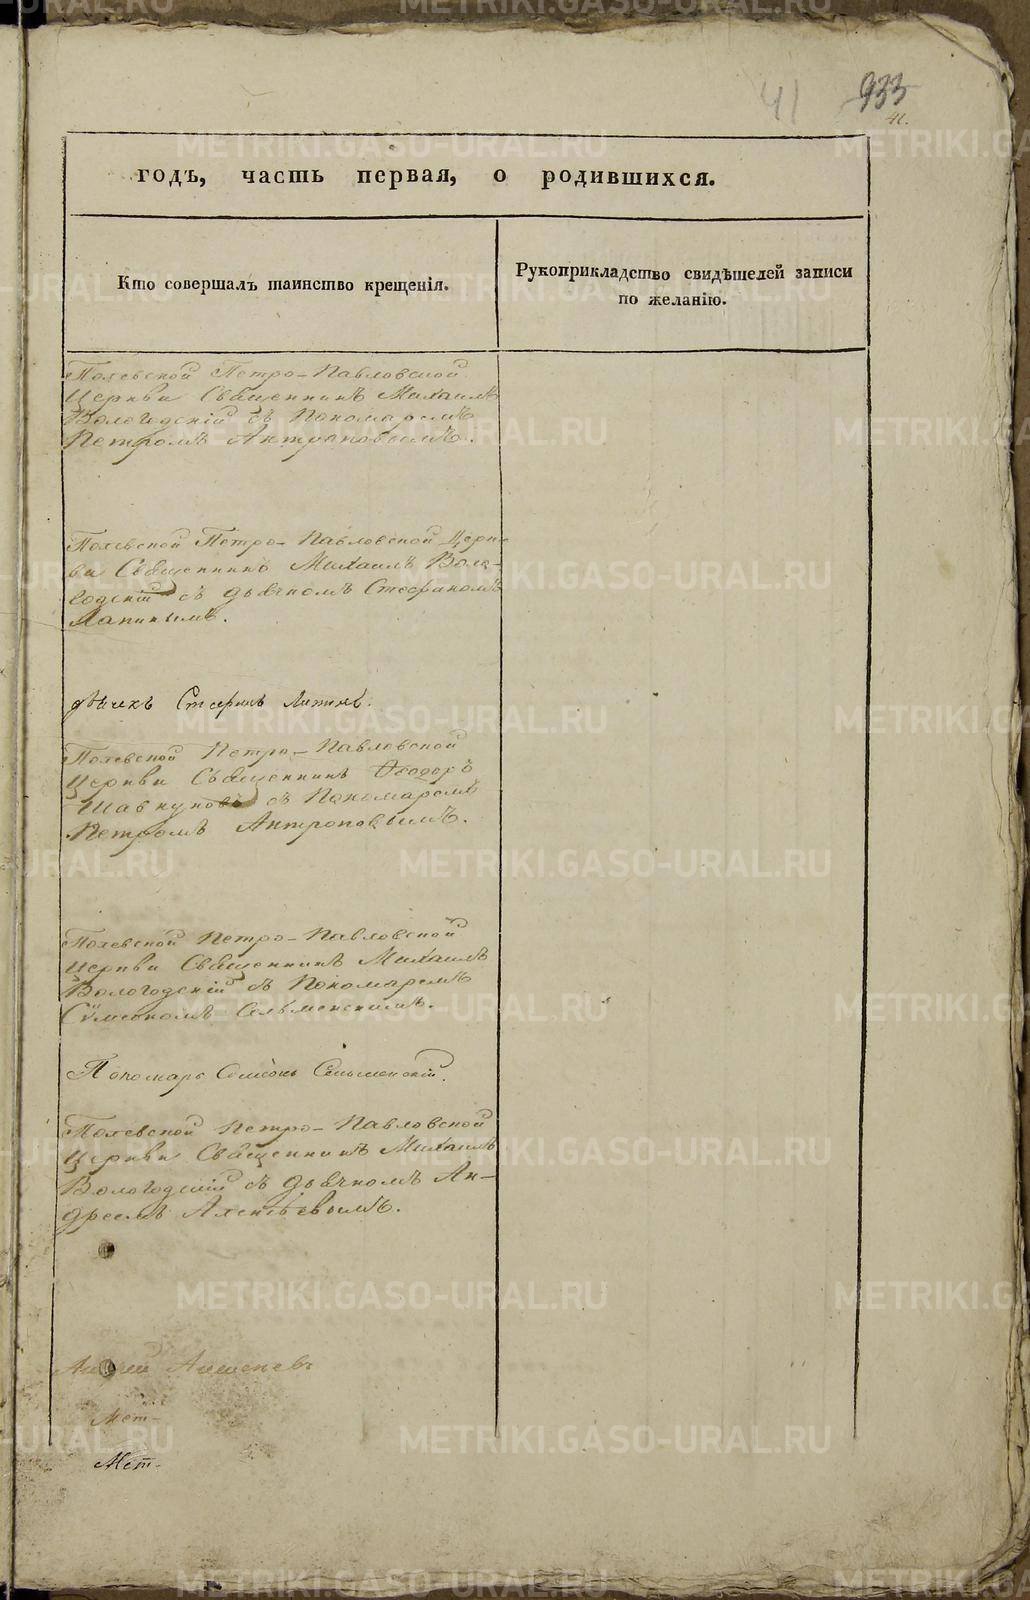 41 933
41.
годъ, часть первая, о родившихся.
Кто совершалъ таинство крещенія.
Рукоприкладство свидѣтелей записи
по желанію.
Полевской Петро-Павловской
Церкви Священникъ Михаилъ
Вологодскій съ Пономаремъ
Петромъ Антроповымъ.
Полевской Петро-Павловской Церк-
ви Священникъ Михаилъ Воло-
годскій съ дьячкомъ Стефаномъ
Лапинымъ.
дьячекъ Стефанъ Лапинъ.
Полевской Петро-Павловской
Церкви Священникъ Ѳеодоръ
Шавкуновъ съ Пономаремъ
Петромъ Антроповымъ.
Полевской Петро-Павловской
Церкви Священникъ Михаилъ
Вологодскій съ Пономаремъ
Сѵмеономъ Сельменскимъ.
Пономарь Симеонъ Сельменскій.
Полевской Петро-Павловской
Церкви Священникъ Михаилъ
Вологодскій съ дьячкомъ Ан-
дреемъ Алексѣевымъ.
Мет-
Мет-
METRIKI.GASO-URAL.RU